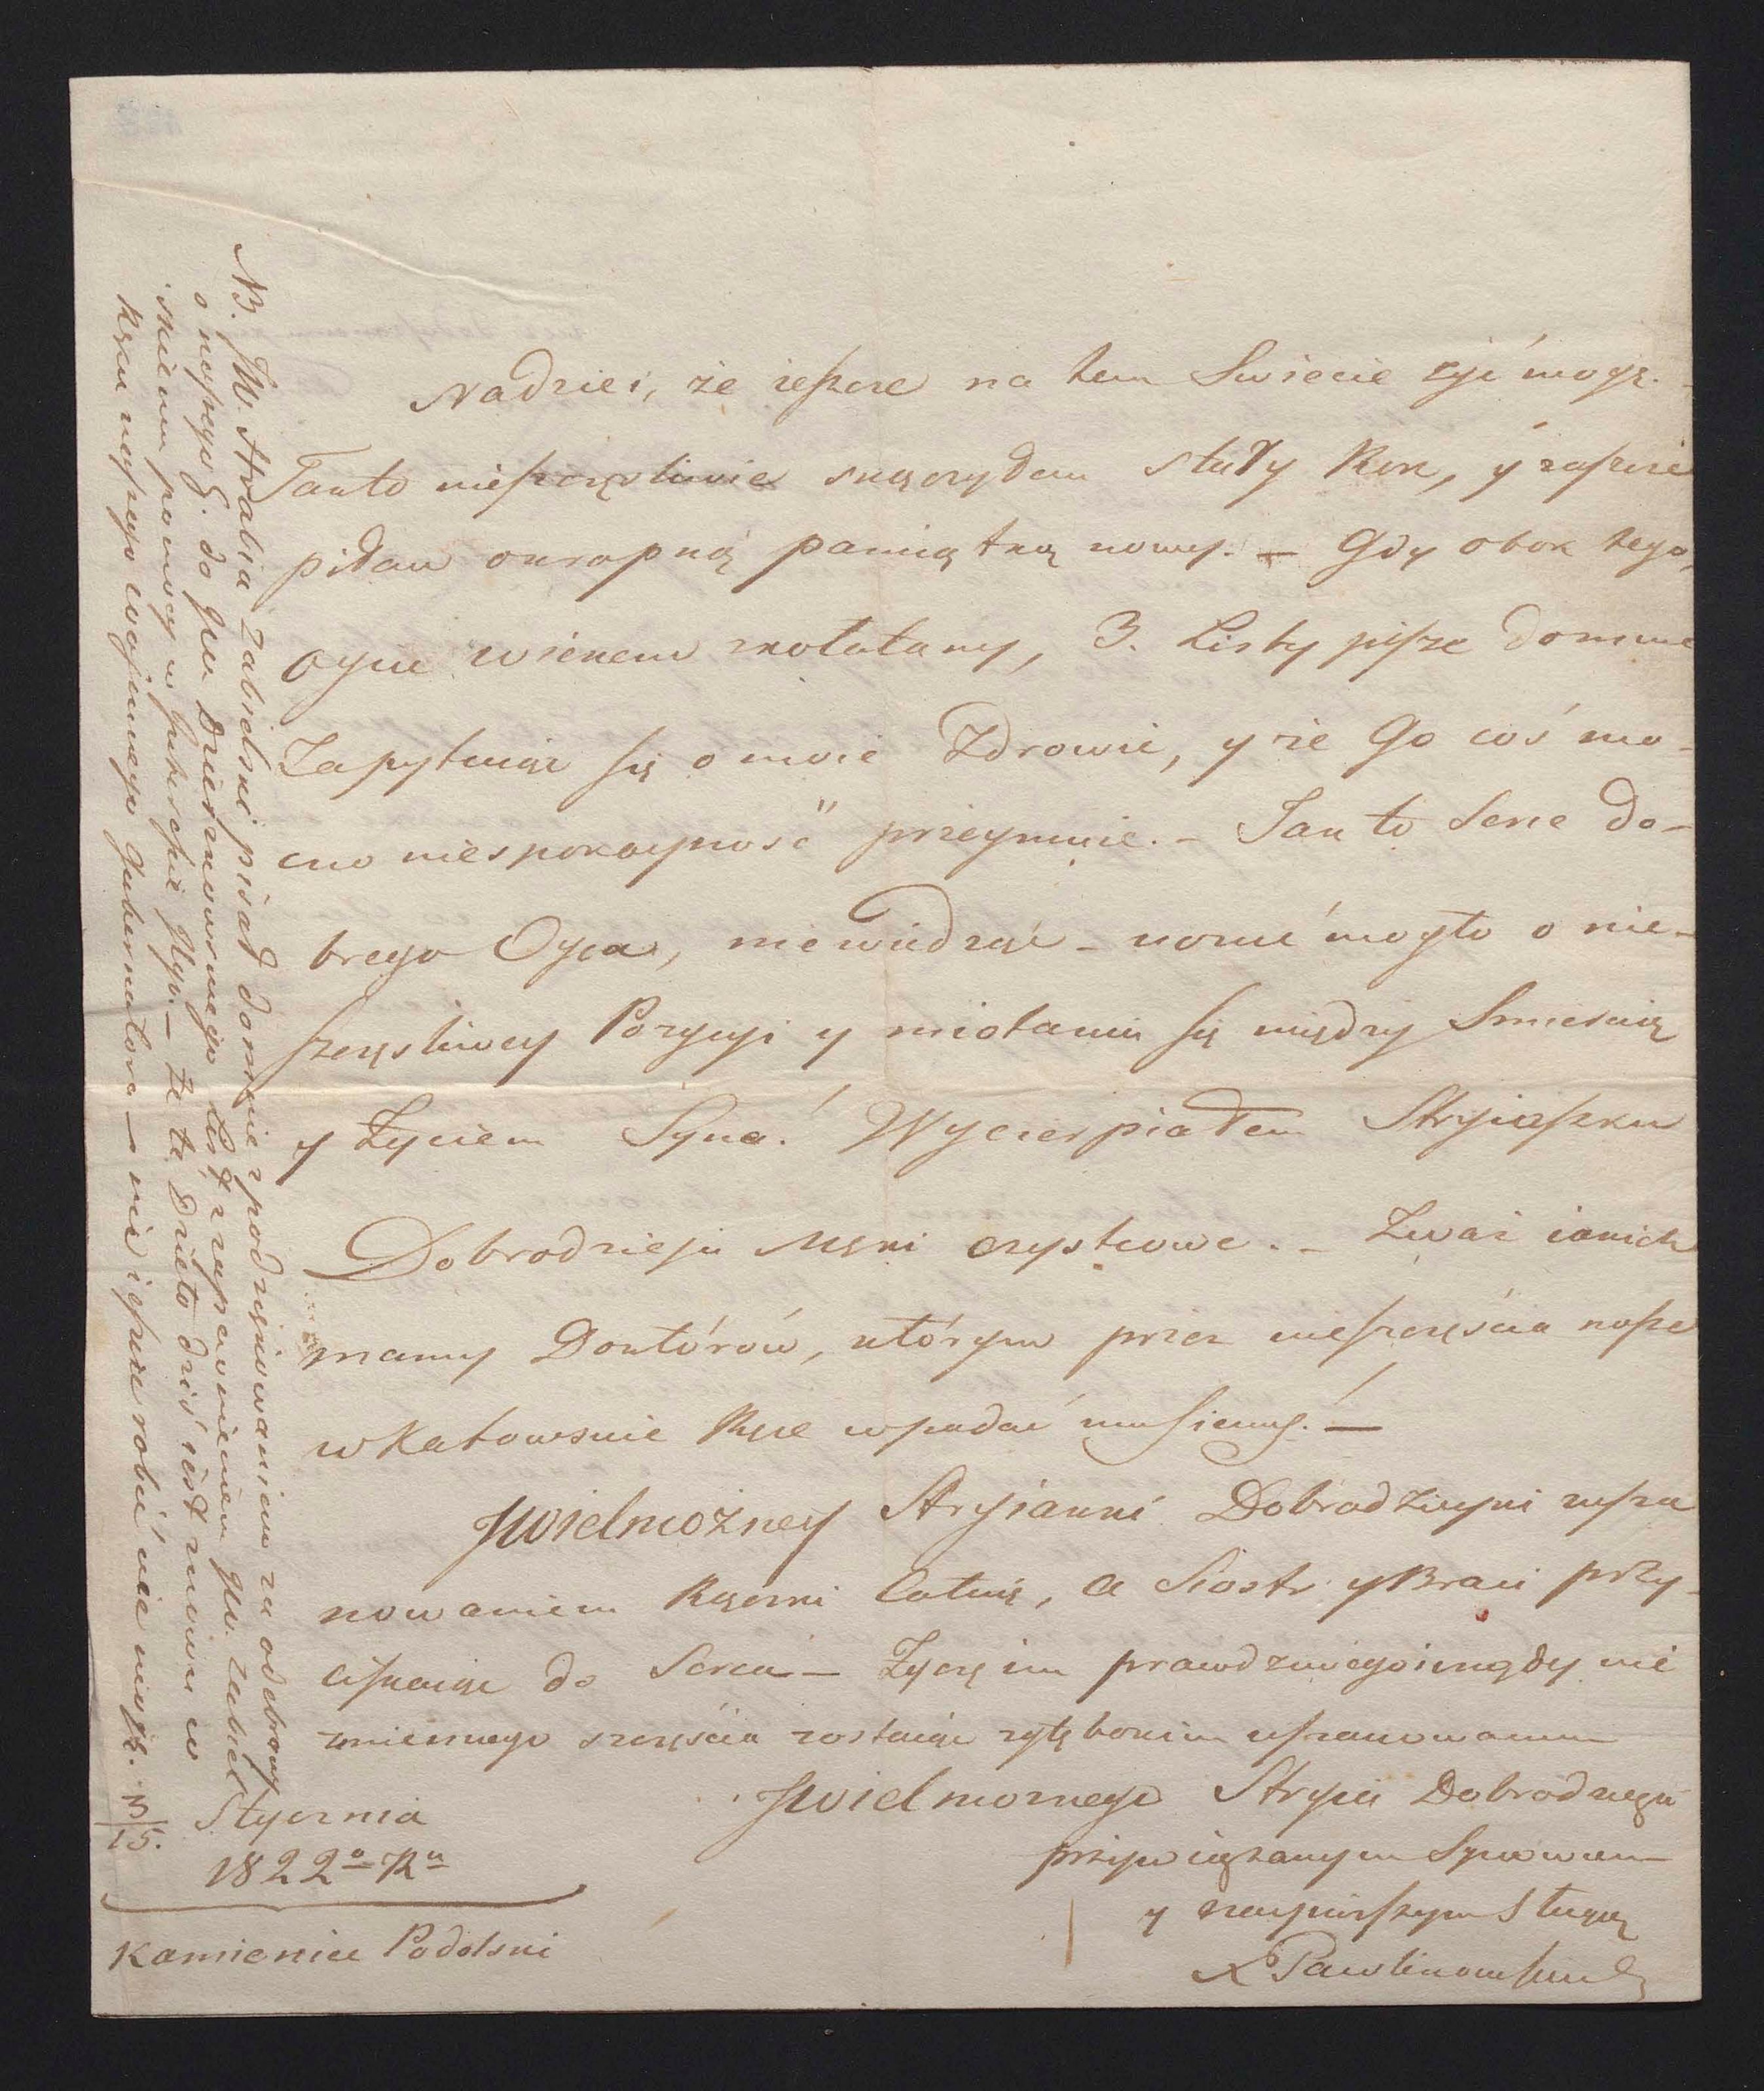 Nadziei, że ieszcze na tem Swiecie żyć mogę. -
Tak to nieszczęsliwie skączyłem stary Rok, y zaszcze
piłem okropną pamiątką nowy. - Gdy obok tego,
Oyciec wiekem skołatany, 3. Listy pisze do mnie
Zapytuiąc się o moie Zdrowie, y że Go coś mo-
cno niespokoyność przeymuie. - Tak to Serce do-
brego Oyca, niewiedząc - wonić mogło o nie-
szczęsliwey Pozycyi y miotaniu się między Smiercią
y Życiem Syna! Wycierpiałem Stryiaszku
Dobrodzieju Męki czystcowe. - Zważ iakich
mamy Doktórów, którym przez nieszczęścia nasze
w Katowskie Ręce wpadać musiemy. -
JWielmożney Stryianki Dobrodzieyki z usza
nowaniem Rączki Całuię, a Siostr y Braci przy-
ciskaiąc do Serca - Życzę im prawdziwego i nigdy nie
zmiennego szczęścia zostaiąc z głębokim uszanowaniem
JWielmożnego Stryia Dobrodzieja
przywiązanym Synowcem
y naypierszym Sługą
X Pawlikowski
3/15. Stycznia
1822o Ru
Kamieniec Podolski
NB. JW. Hrabia Zabielski pisał do mnie z podziękowaniem za odebrany
o naszego X. do JW Dzierzkowskiego List z zapewnieniem JW. Zabiel
skiemu pomocy w Interessie Jego. - Że to Dzieło dziś iest znowu w
Ręku naszego Woiennego Gubernatora - nic ieszcze robić nie mogę.